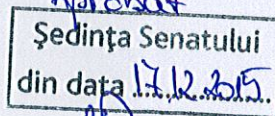 Ședința Senatului
din data 17.12.2015.